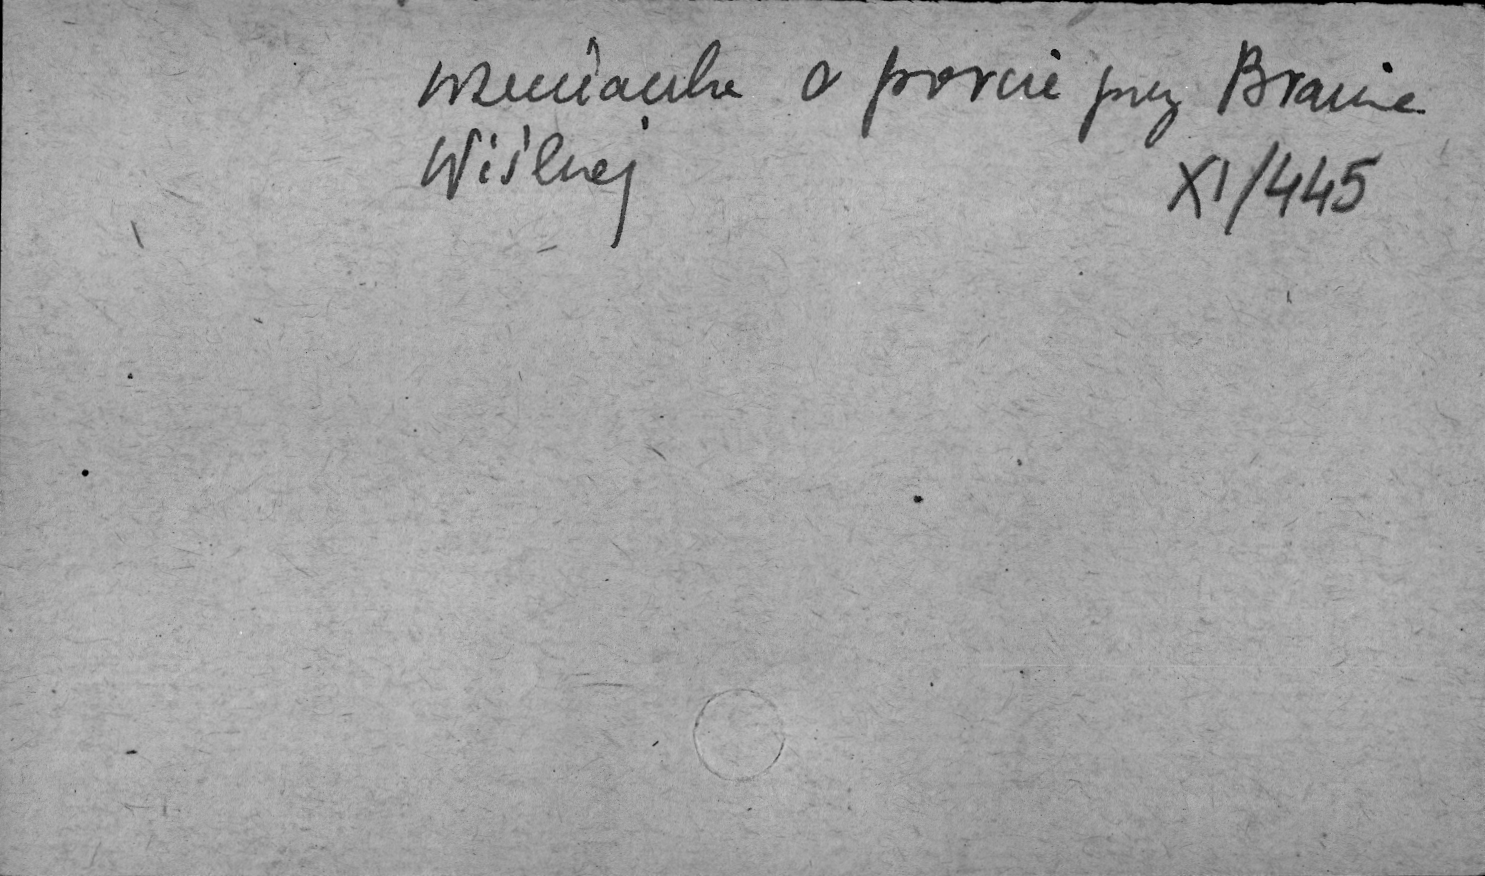 wzmianka o porcie przy Bramie
Wiślnej
XI/445